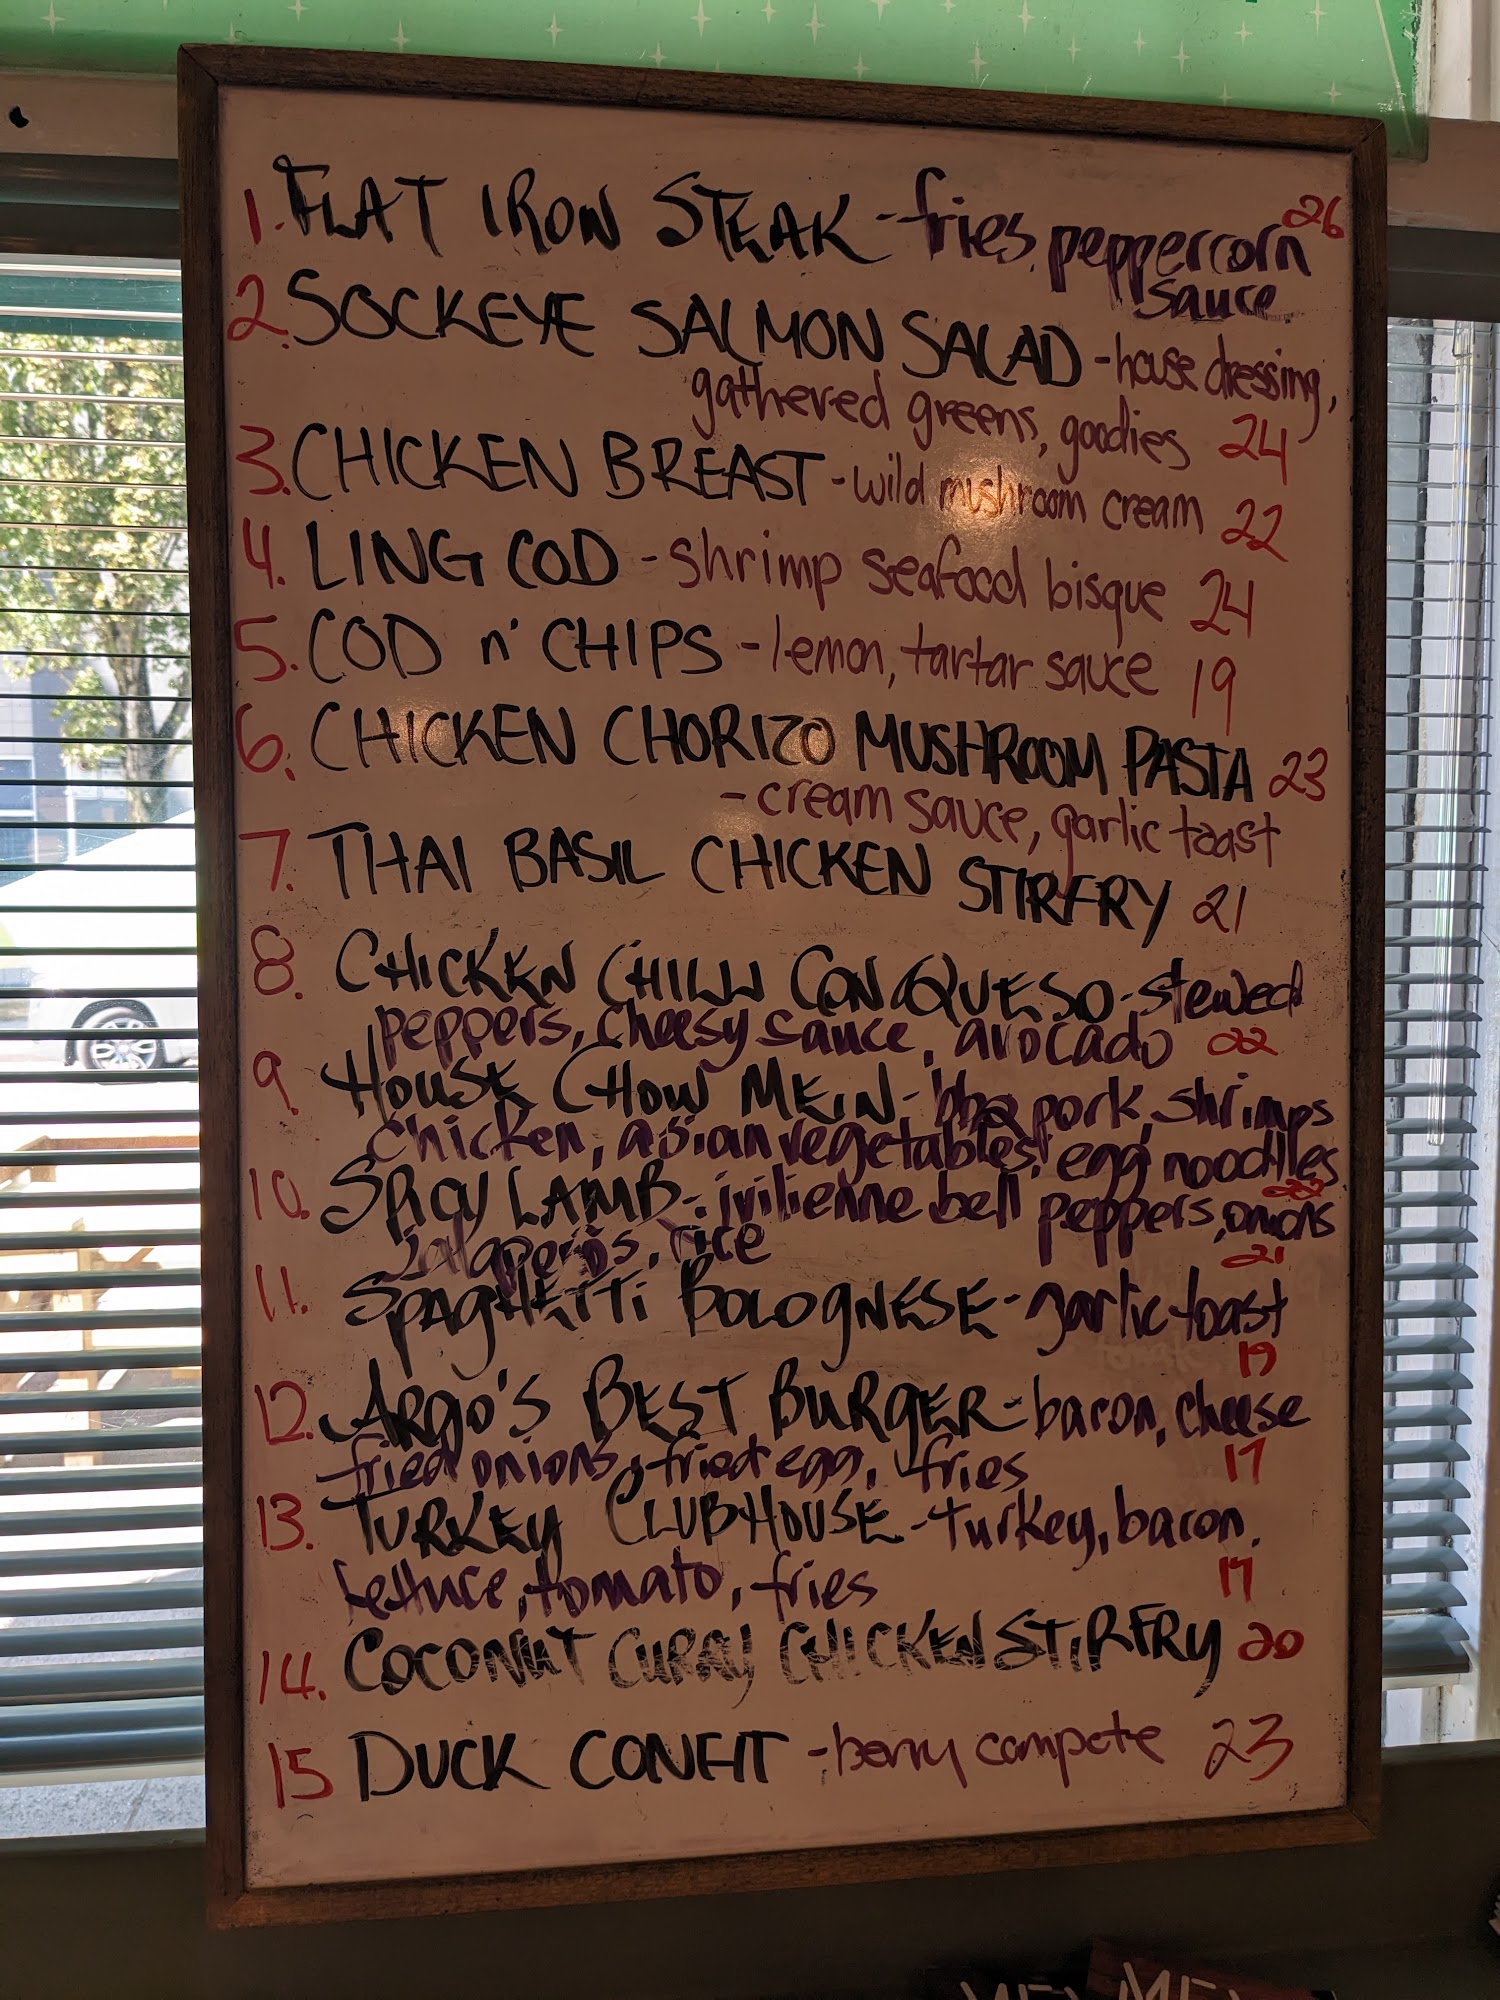 1. FLAT IRON STEAK - fries, peppercorn 26
sauce
2. SOCKEYE SALMON SALAD - house dressing,
gathered greens, goodies 24
3. CHICKEN BREAST - wild mushroom cream 22
4. LING COD - shrimp seafood bisque 24
5. COD n' CHIPS - lemon, tartar sauce 19
6. CHICKEN CHORIZO MUSHROOM PASTA 23
- cream sauce, garlic toast
7. THAI BASIL CHICKEN STIRFRY 21
8. CHICKEN CHILLI CON QUESO - stewed
peppers, cheesy sauce, avocado 22
9. HOUSE CHOW MEIN - bbq pork, shrimps
chicken, asian vegetables, egg noodles
10. SPICY LAMB - jvilienne bell peppers, onions
Jalapeños, rice 21
11. SPAGHETTI BOLOGNESE - garlic toast
19
12. ARGO'S BEST BURGER - bacon, cheese
fried onions, fried egg, fries 17
13. TURKEY CLUBHOUSE - turkey, bacon,
lettuce, tomato, fries 17
14. COCONUT CURRY CHICKEN STIRFRY 20
15 DUCK CONFIT - berry compote 23